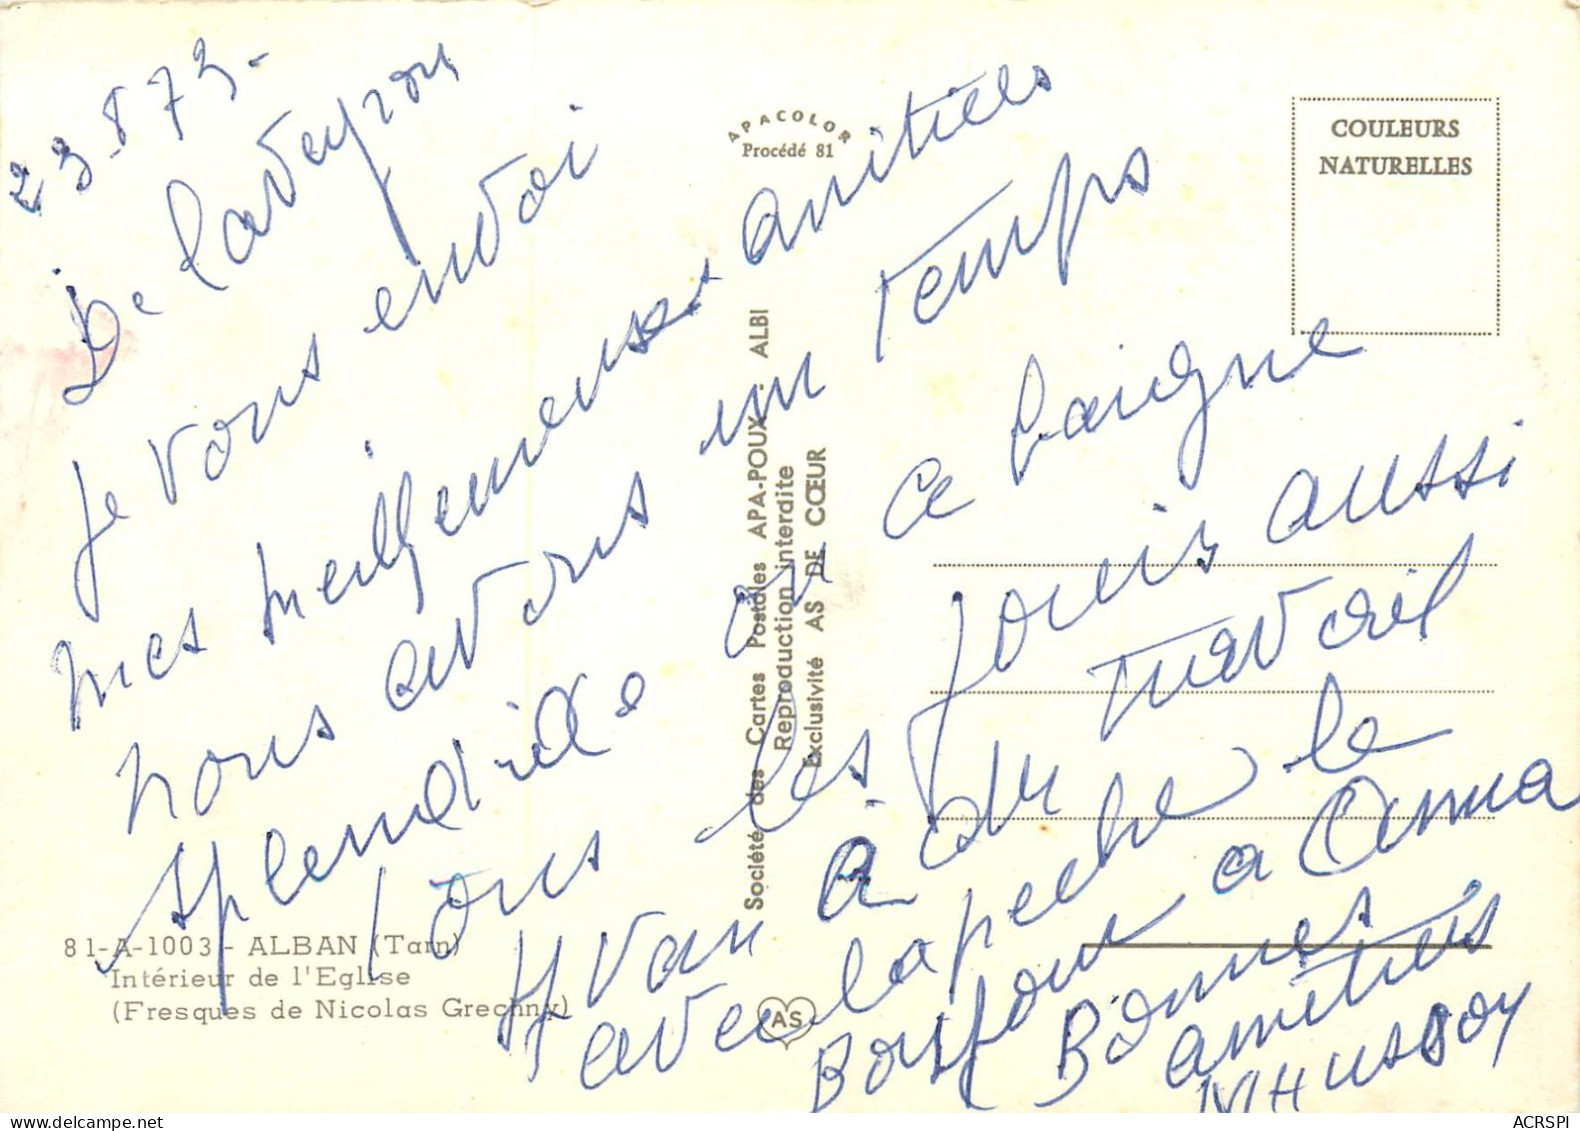 23-8 73-
De laveyron
Je vous envoi
mes meilleures amitiés
nous avons un temps
splendide on ce baigne
tous les jours aussi
Yvan a du travail
avec la peche le
Bonjour a Anna
Bonnes amitiés
APACOLOR
Procédé 81
COULEURS
NATURELLES
Société des Cartes Postales APA-POUX - ALBI
Reproduction interdite
Exclusivité AS DE CŒUR
81-A-1003 - ALBAN (Tarn)
Intérieur de l'Eglise
(Fresques de Nicolas Grechny)
AS
ACRSPI